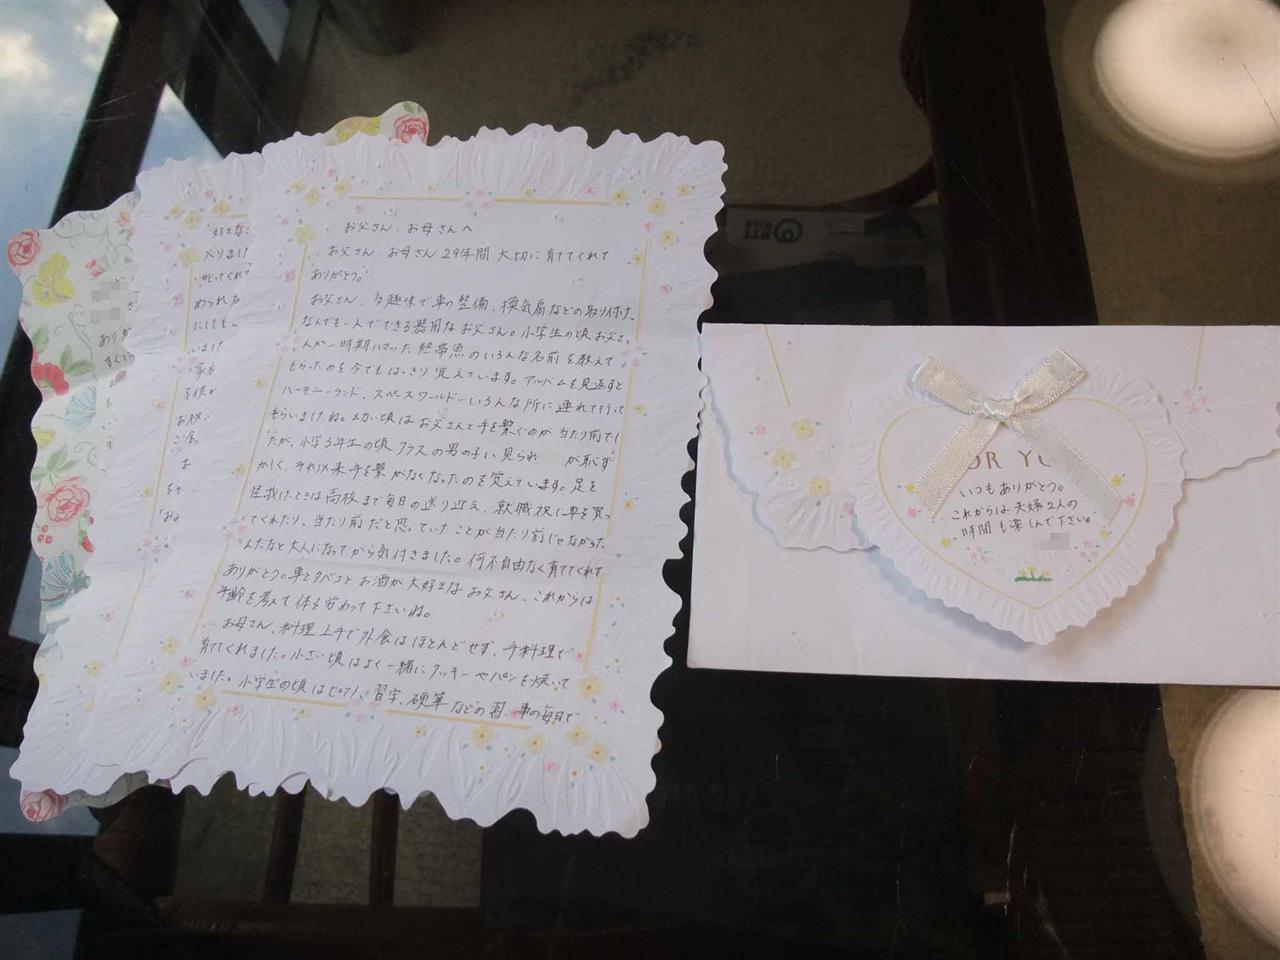 お父さん、お母さんへ
お父さん、お母さん29年間大切に育ててくれて
ありがとう。
お父さん、多趣味で車の整備、換気扇などの取り付け、
なんでも一人でできる器用なお父さん。小学生の頃お父さ
んが一時期ハマった熱帯魚のいろんな名前を教えて
もらったのを今でもはっきり覚えています。アルバムを見返すと
ハーモニーランド、スペースワールド…いろんな所に連れて行って
もらいましたね。幼い頃はお父さんと手を繋ぐのが当たり前でし
たが、小学3年生の頃クラスの男の子に見られ が恥ず
かしく、それ以来手を繋がなくなったのを覚えています。足を
怪我したときは高校まで毎日の送り迎え、就職祝に車を買っ
てくれたり、当たり前だと思っていたことが当たり前じゃなかった
んだなと大人になってから気付きました。何不自由なく育ててくれて
ありがとう。車とタバコとお酒が大好きなお父さん、これからは
年齢を考えて体を労わって下さいね。
お母さん、料理上手で外食はほとんどせず、手料理で
育ててくれました。小さい頃はよく一緒にクッキーやパンを焼いて
いました。小学生の頃はピアノ、習字、硬筆などの習い事の毎日で
好きな
入りまし
叱ってくれて
められた
にしても
います
家
子供が
お
ご飯
お
を
「お
ありが
すぐに
FOR YOU
いつもありがとう。
これからは夫婦2人の
時間も楽しんで下さい。
NTT